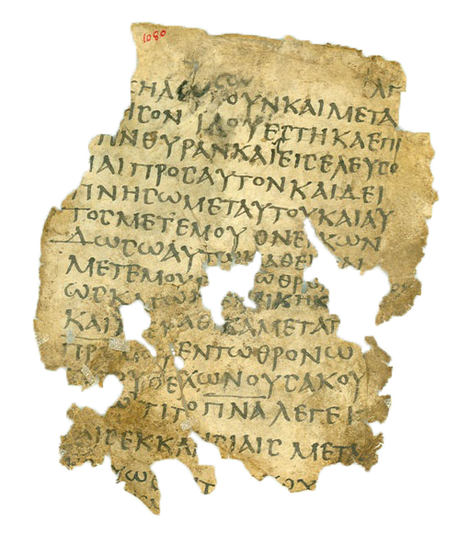 1080
ΗΛ ΟΥΝΚΑΙΜΕΤΑ
ΗϹΟΝ ΙΔΟΥΕϹΤΗΚΑΕΠΙ
ΗΝΘΥΡΑΝΚΑΙΕΙϹΕΛΕΥϹΟ
ΜΑΙΠΡΟϹΑΥΤΟΝΚΑΙΔΕΙ
ΠΝΗϹΩΜΕΤΑΥΤΟΥΚΑΙΑΥ
ΤΟϹΜΕΤΕΜΟΥ ΟΝΕΙΚΩΝ
ΔΩϹΩΑΥΤ ΑΘΕΙ
ΜΕΤΕΜΟΥ ΘΡΟ
ΩϹΚΑΓΩ ΕΙΚΗΚ
ΚΑΙ ΚΑΘΙϹΑΜΕΤΑΤ
ΠΡ ΟΥΕΝΤΩΘΡΟΝΩ
ΟΕΧΩΝΟΥϹΑΚΟΥ
ΤΙΤΟΠΝΑΛΕΓΕΙ
ΑΙϹΕΚΚΛΗϹΙΑΙϹ ΜΕΤΑ